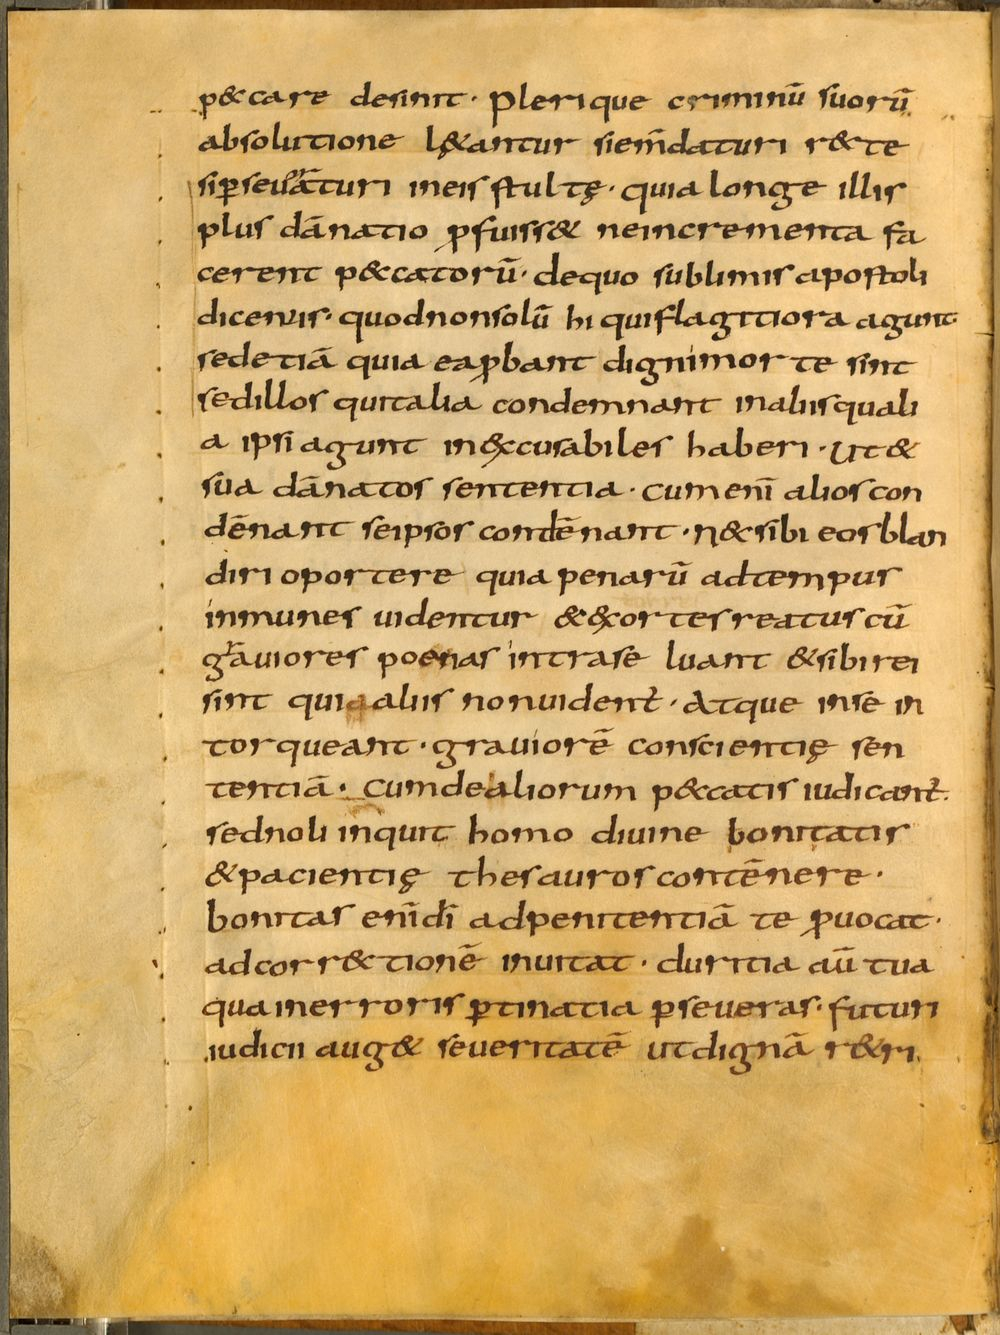 p&care desinit · Plerique criminū suorū
absolutione l&antur siem̄daturi r&te
sip̱seuāturi ineis stultę · quia longe illis
plus dānatio ꝓfuiss& neincrementa fa
cerent p&catorū · dequo sublimis apostoli
dicentis · quodnonsolū hi quiflagitiora agunt·
sedetiā quia eaꝓbant dignimorte sint
sedillos quitalia condemnant inaliisquali
a ipsi agunt in&xcusabiles haberi · Ut &
sua dānatos sententia · cumenī alioscon
dēnant seipsos condēnant · N& sibi eosblan
diri oportere quia penarū adtempus
inmunes uidentur & &xortesreatus cū
grauiores poenas intrase luant & sibi rei
sint quia aliis nonuident᷑ · Atque inse in
torqueant · grauiorē conscientię sen
tentiā · Cumdealiorum p&catis iudicant᷑.
sednoli inquit homo diuine bonitatis
& pacientię thesauros contēnere ·
bonitas enīdī adpenitentiā te ꝓuocat ·
adcorr&tionē inuitat · duritia aū tua
quainerroris ꝑtinatia ꝑseueras · futuri
iudicii aug& seueritatē utdignā r&ri